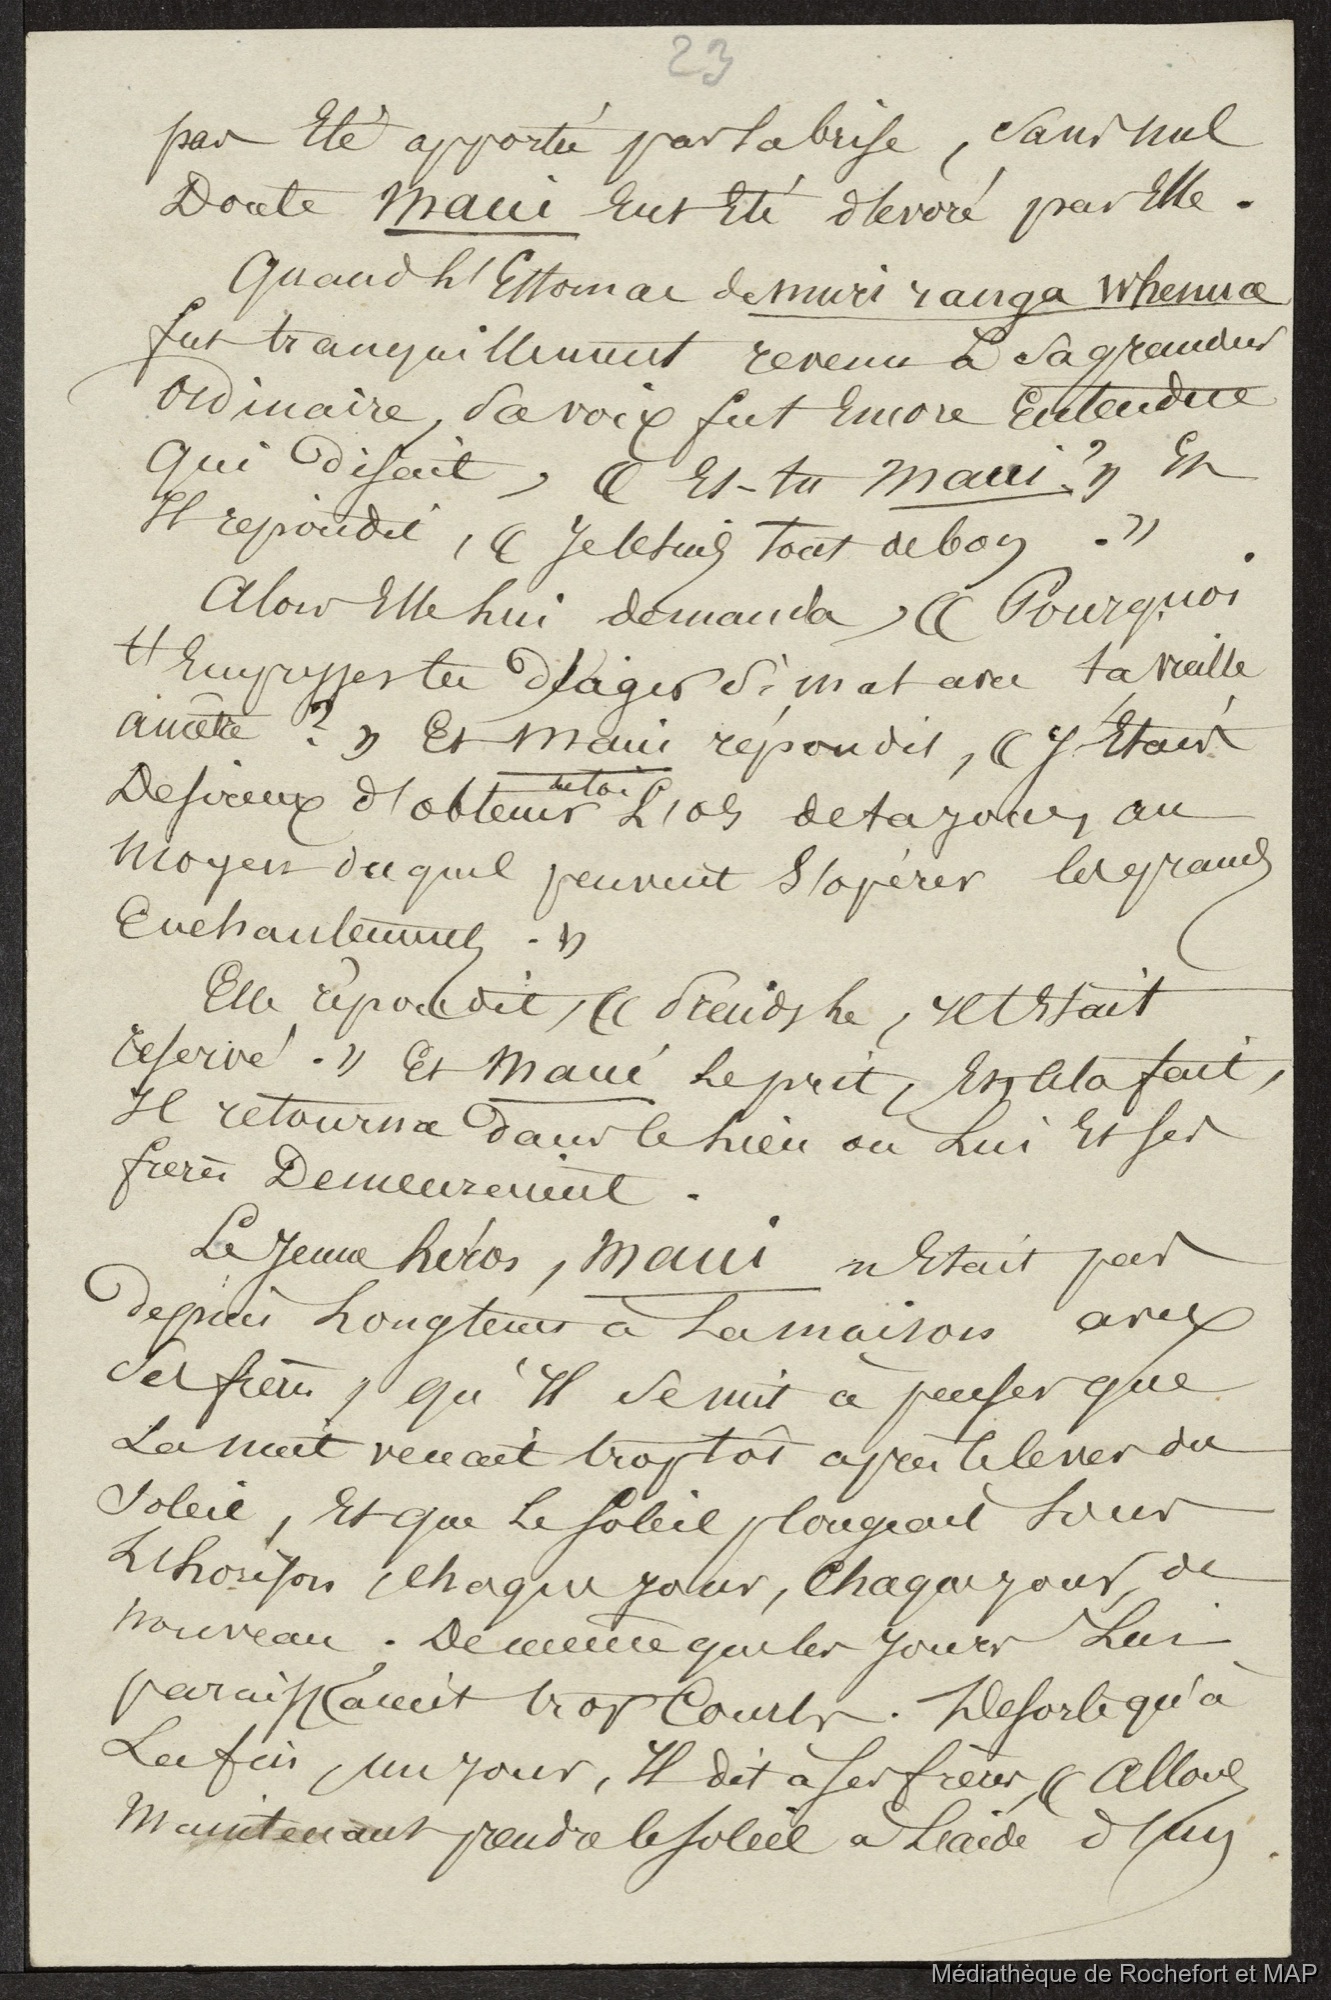 23
pas Eté apporté par la brise, sans nul
Doute Maui Eut Eté dévoré par Elle.
Quand l'Estomac de Muri ranga Whenua
fut tranquillement revenu à sa grandeur
ordinaire, sa voix fut Encore Entendue
qui disait, « Es-tu Maui ? » Et
Il repondit, « Je le suis tout de bon. »
Alors Elle lui demanda, « Pourquoi
t'Empresses tu d'agir si mal avec ta vieille
ancêtre ? » Et Maui répondit, « J'Etais
Desireux d'obtenir de toi L'os de ta joue, au
moyen duquel peuvent s'opérer les grands
Enchantements. »
Elle répondit, « Prends le, Il t'Etait
reservé. » Et Maui le prit, Et cela fait,
Il retourna dans le lieu ou Lui Et ses
freres Demeuraient.
Le Jeune héros, Maui n'Etait pas
depuis Longtems à La maison avec
ses frères, qu'Il se mit à penser que
La nuit venait trop tôt après le lever du
Soleil, Et que Le Soleil plongeait sous
L'horison, chaque jour, chaque jour, de
nouveau. De même que les jours Lui
paraissaient trop Courts. Desorte qu'à
La fin, un jour, Il dit à ses frères, « Allons
Maintenant prendre le soleil à L'aide d'un
Médiathèque de Rochefort et MAP